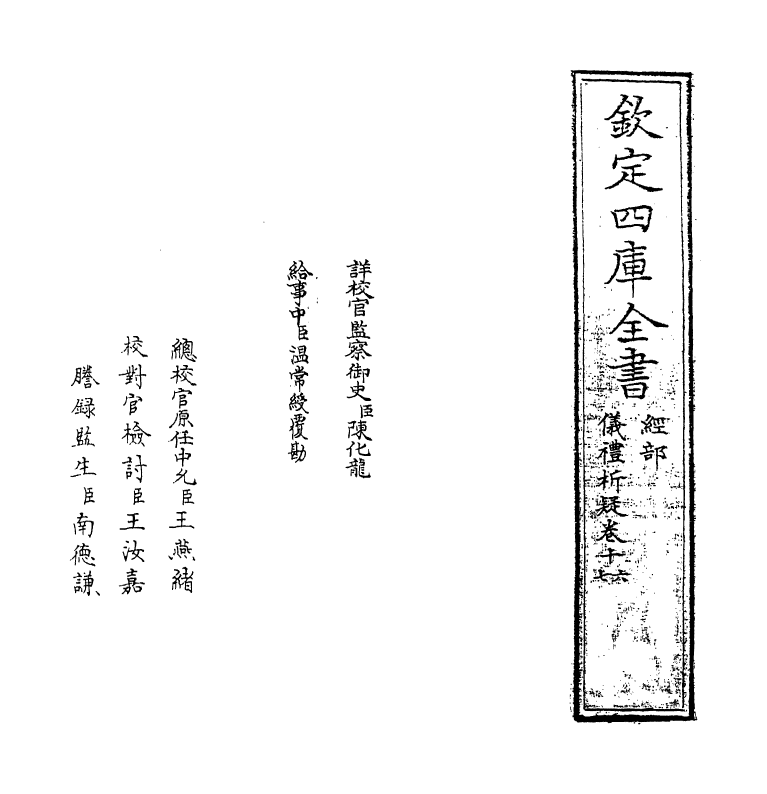 欽定四庫全書
經部
儀禮析疑卷十六七
詳校官監察御史臣陳化龍
給事中臣温常綬覆勘
總校官原任中允臣王燕緒
校對官檢討臣王汝嘉
謄録監生臣南德謙